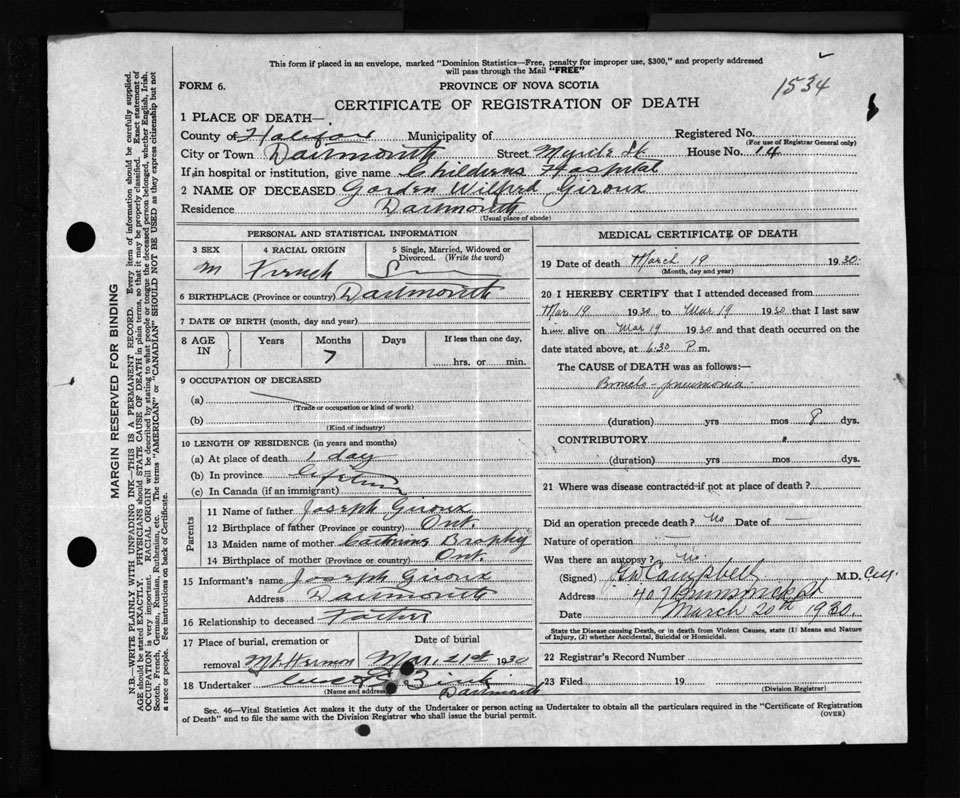 This form if placed in an envelope, marked "Dominion Statistics—Free, penalty for improper use, $300," and properly addressed
will pass through the Mail "FREE"
1534
FORM 6.
PROVINCE OF NOVA SCOTIA
CERTIFICATE OF REGISTRATION OF DEATH
1 PLACE OF DEATH—
County of Halifax Municipality of Registered No.
(For use of Registrar General only)
City or Town Dartmouth Street Myrtle St House No. 14
If in hospital or institution, give name Childrens Hospital
2 NAME OF DECEASED Gorden Wilfred Giroux
Residence Dartmouth
(Usual place of abode)
PERSONAL AND STATISTICAL INFORMATION
3 SEX 4 RACIAL ORIGIN 5 Single, Married, Widowed or
Divorced. (Write the word)
M French
6 BIRTHPLACE (Province or country) Dartmouth
7 DATE OF BIRTH (month, day and year)
8 AGE IN Years Months Days If less than one day,
7 hrs. or min.
9 OCCUPATION OF DECEASED
(a)
(Trade or occupation or kind of work)
(b)
(Kind of industry)
10 LENGTH OF RESIDENCE (in years and months)
(a) At place of death 1 day
(b) In province
(c) In Canada (if an immigrant)
Parents
11 Name of father Joseph Giroux
12 Birthplace of father (Province or country) Ont.
13 Maiden name of mother Brophy
14 Birthplace of mother (Province or country) Ont.
15 Informant's name Joseph Giroux
Address Dartmouth
16 Relationship to deceased Father
17 Place of burial, cremation or Date of burial
removal Mt Hermon Mar. 21st 1930
18 Undertaker
(Name and address) Dartmouth
MEDICAL CERTIFICATE OF DEATH
19 Date of death March 19 1930
(Month, day and year)
20 I HEREBY CERTIFY that I attended deceased from
Mar 19 1930 to Mar 19 1930 that I last saw
h alive on Mar 19 1930 and that death occurred on
date stated above, at 6.30 P. m.
The CAUSE of DEATH was as follows:—
Broncho-pneumonia.
(duration) yrs mos 8 dys.
CONTRIBUTORY
(duration) yrs. mos. dys.
21 Where was disease contracted if not at place of death?
Did an operation precede death? No Date of —
Nature of operation —
Was there an autopsy? No
(Signed) Campbell M.D.
Address 407 Brunswick St
Date March 20th 1930.
State the Disease causing Death, or in death from Violent Causes, state (1) Means and Nature
of Injury, (2) whether Accidental, Suicidal or Homicidal.
22 Registrar's Record Number
23 Filed 19
(Division Registrar)
Sec. 46—Vital Statistics Act makes it the duty of the Undertaker or person acting as Undertaker to obtain all the particulars required in the "Certificate of Registration
of Death" and to file the same with the Division Registrar who shall issue the burial permit.
(OVER)
MARGIN RESERVED FOR BINDING
N.B.—WRITE PLAINLY, WITH UNFADING INK—THIS IS A PERMANENT RECORD. Every item of information should be carefully supplied.
AGE should be stated EXACTLY. PHYSICIANS should STATE CAUSE OF DEATH in plain terms, so that it may be properly classified. Exact statement of
OCCUPATION is very important. RACIAL ORIGIN will be described by stating to what people or tongue the deceased person belonged, whether English, Irish,
Scotch, French, German, Russian, Ruthenian, etc. The terms "AMERICAN" or "CANADIAN" SHOULD NOT BE USED as they express citizenship but not
a race or people. See instructions on back of Certificate.